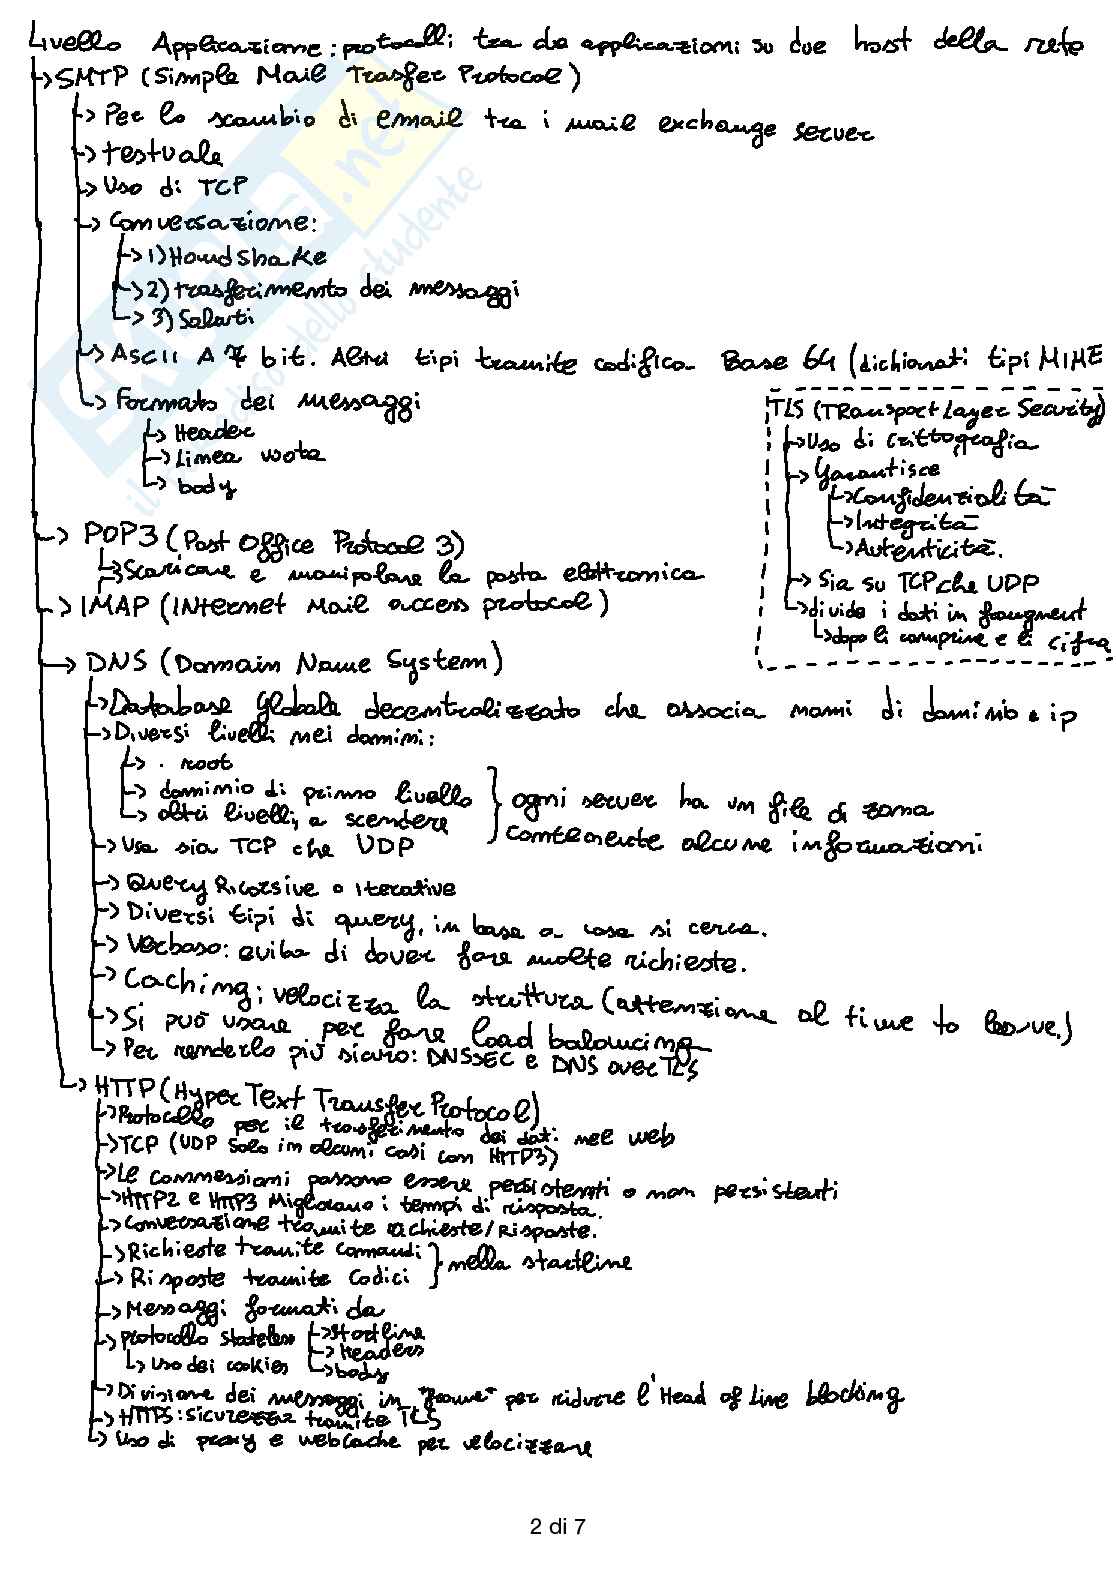 Livello Applicazione: protocolli tra da applicazioni su due host della rete
SMTP (Simple Mail Trasfer Protocol)
Per lo scambio di email tra i mail exchange server
testuale
Uso di TCP
Conversazione:
1) Handshake
2) trasferimento dei messaggi
3) Saluti
ASCII A 7 bit. Altri tipi tramite codifica Base 64 (dichionati tipi MIME
Formato dei messaggi
Header
Linea vuota
body
TLS (TRansport Layer Security)
Uso di crittografia
Garantisce
Confidenzialità
Integrità
Autenticità.
Sia su TCP che UDP
divide i dati in fragment
dopo li comprime e li cifra
POP3 (Post Office Protocol 3)
Scaricare e manipolare la posta elettronica
IMAP (INternet Mail access protocol)
DNS (Domain Name System)
Database Globale decentralizzato che associa nomi di dominio e ip
Diversi livelli nei domini:
. root
dominio di primo livello
altri livelli, a scendere
ogni server ha un file di zona
contenente alcune informazioni
Usa sia TCP che UDP
Query Ricorsive o iterative
Diversi tipi di query, in base a cosa si cerca.
Verboso: evita di dover fare molte richieste.
Caching: velocizza la struttura (attenzione al time to leave.)
Si può usare per fare load balancing
Per renderlo più sicuro: DNSSEC e DNS over TLS
HTTP (Hyper Text Transfer Protocol)
Protocollo per il trasferimento dei dati nel web
TCP (UDP solo in alcuni casi con HTTP3)
Le connessioni possono essere persistenti o non persistenti
HTTP2 e HTTP3 Migliorano i tempi di risposta.
Conversazione tramite richieste/Risposte.
Richieste tramite comandi
Risposte tramite codici
nella startline
Messaggi formati da
Startline
Headers
body
Protocollo stateless
Uso dei cookies
Divisione dei messaggi in "frame" per ridurre l'Head of Line blocking
HTTPS: sicurezza tramite TLS
Uso di proxy e webcache per velocizzare
2 di 7